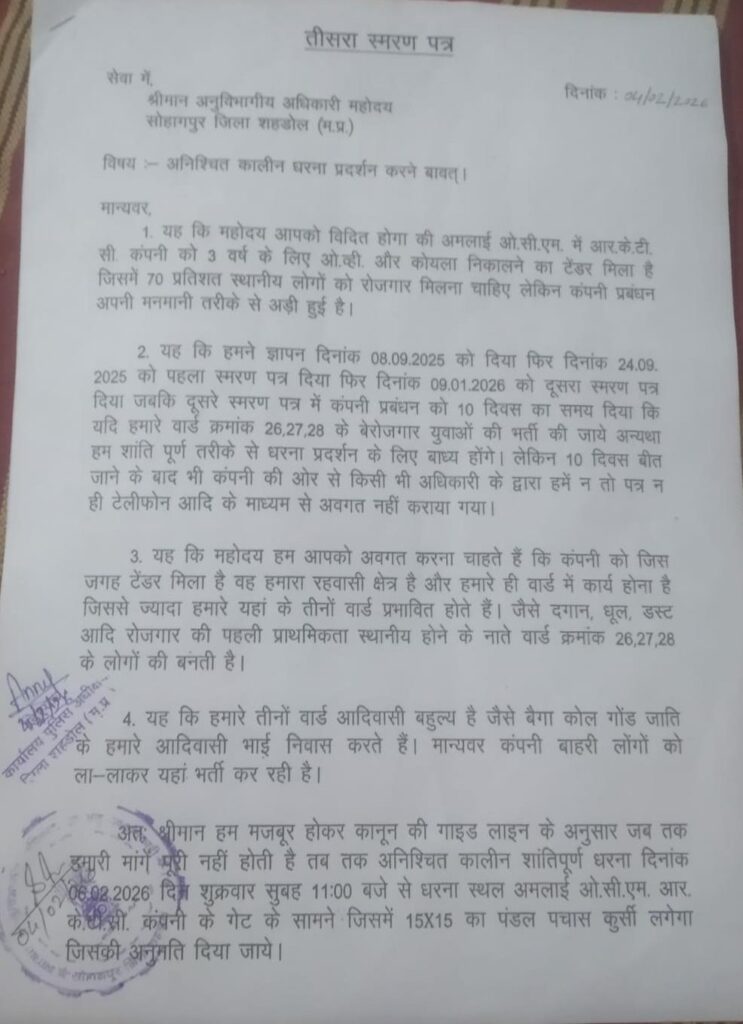 तीसरा स्मरण पत्र
सेवा में,
दिनांक : 04/02/2026
श्रीमान अनुविभागीय अधिकारी महोदय
सोहागपुर जिला शहडोल (म.प्र.)
विषय :– अनिश्चित कालीन धरना प्रदर्शन करने बावत्।
मान्यवर,
1. यह कि महोदय आपको विदित होगा की अमलाई ओ.सी.एम. में आर.के.टी.
सी. कंपनी को 3 वर्ष के लिए ओ.व्ही. और कोयला निकालने का टेंडर मिला है
जिसमें 70 प्रतिशत स्थानीय लोगों को रोजगार मिलना चाहिए लेकिन कंपनी प्रबंधन
अपनी मनमानी तरीके से अड़ी हुई है।
2. यह कि हमने ज्ञापन दिनांक 08.09.2025 को दिया फिर दिनांक 24.09.
2025 को पहला स्मरण पत्र दिया फिर दिनांक 09.01.2026 को दूसरा स्मरण पत्र
दिया जबकि दूसरे स्मरण पत्र में कंपनी प्रबंधन को 10 दिवस का समय दिया कि
यदि हमारे वार्ड क्रमांक 26,27,28 के बेरोजगार युवाओं की भर्ती की जाये अन्यथा
हम शांति पूर्ण तरीके से धरना प्रदर्शन के लिए बाध्य होंगे। लेकिन 10 दिवस बीत
जाने के बाद भी कंपनी की ओर से किसी भी अधिकारी के द्वारा हमें न तो पत्र न
ही टेलीफोन आदि के माध्यम से अवगत नहीं कराया गया।
3. यह कि महोदय हम आपको अवगत करना चाहते हैं कि कंपनी को जिस
जगह टेंडर मिला है वह हमारा रहवासी क्षेत्र है और हमारे ही वार्ड में कार्य होना है
जिससे ज्यादा हमारे यहां के तीनों वार्ड प्रभावित होते हैं। जैसे दगान, धूल, डस्ट
आदि रोजगार की पहली प्राथमिकता स्थानीय होने के नाते वार्ड क्रमांक 26,27,28
के लोगों की बनती है।
4. यह कि हमारे तीनों वार्ड आदिवासी बहुल्य है जैसे बैगा कोल गोंड जाति
के हमारे आदिवासी भाई निवास करते हैं। मान्यवर कंपनी बाहरी लोंगों को
ला–लाकर यहां भर्ती कर रही है।
कार्यालय पुलिस अधीक्षक
जिला शहडोल (म.प्र.
अतः श्रीमान हम मजबूर होकर कानून की गाइड लाइन के अनुसार जब तक
हमारी मांगें पूरी नहीं होती है तब तक अनिश्चित कालीन शांतिपूर्ण धरना दिनांक
06.02.2026 दिन शुक्रवार सुबह 11:00 बजे से धरना स्थल अमलाई ओ.सी.एम. आर.
के.टी.सी. कंपनी के गेट के सामने जिसमें 15X15 का पंडल पचास कुर्सी लगेगा
जिसकी अनुमति दिया जाये।
04/02/26